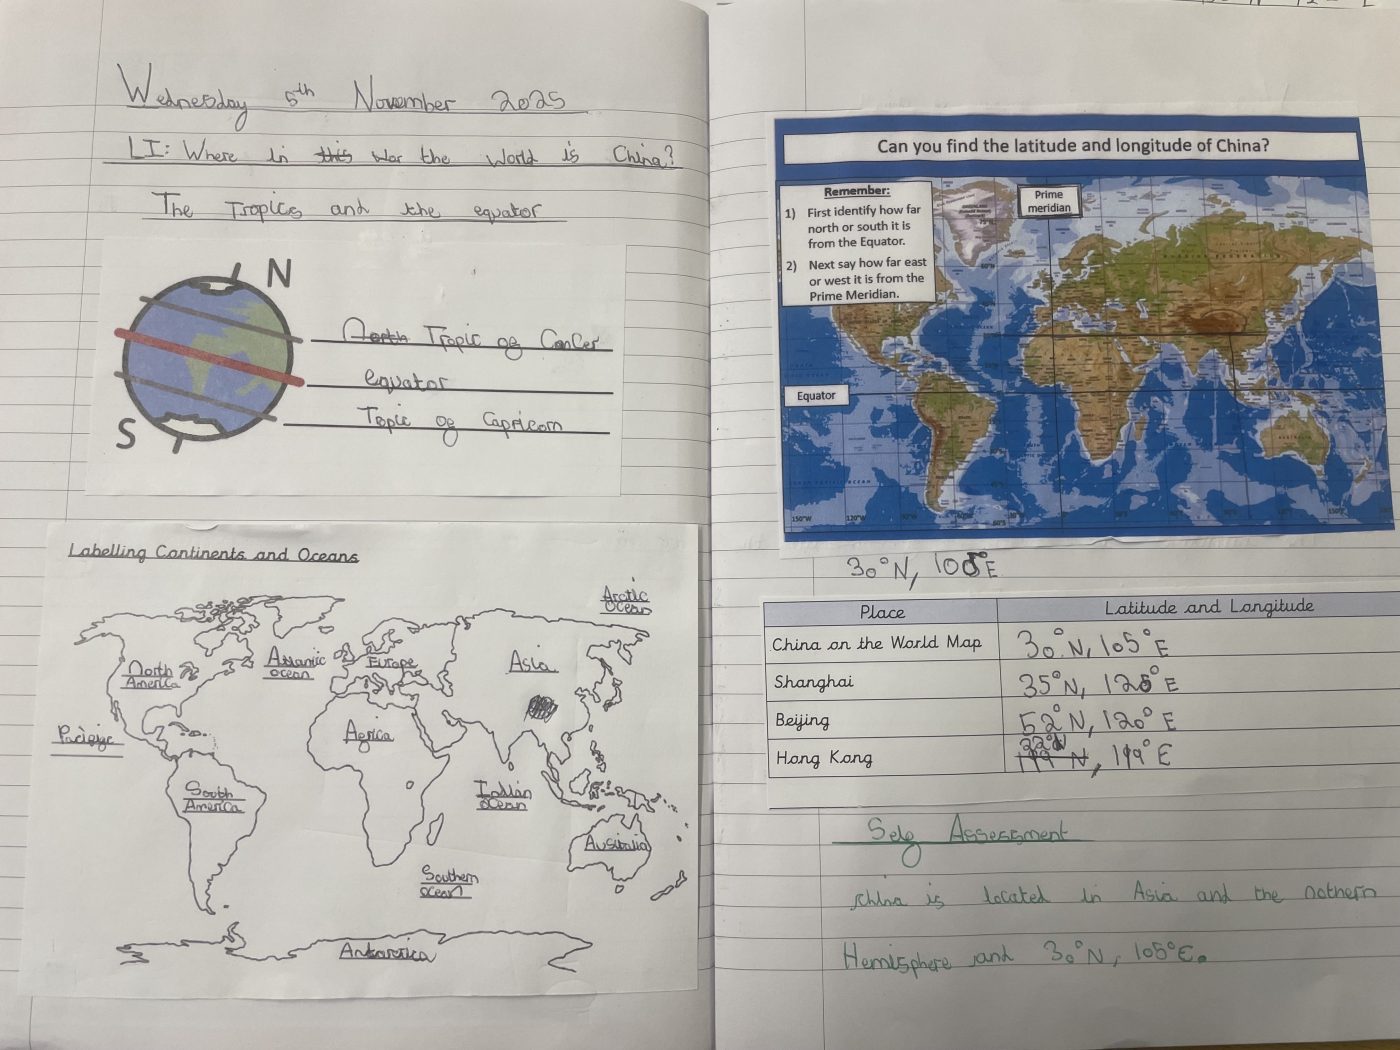 Wednesday 5th November 2025
LI: Where in this war the world is China?
The Tropics and the equator
N
North Tropic of Cancer
equator
Topic of Capricorn
S
Labelling Continents and Oceans
Arctic
Ocean
North
America
Atlantic
ocean
Europe
Asia
Pacific
Africa
South
America
Indian
ocean
Australia
Southern
ocean
Antarctica
Can you find the latitude and longitude of China?
Remember:
1) First identify how far
north or south it is
from the Equator.
2) Next say how far east
or west it is from the
Prime Meridian.
Prime
meridian
Equator
150°W 120°W
30°N, 105°E
Place Latitude and Longitude
China on the World Map 30°N, 105°E
Shanghai 35°N, 120°E
Beijing 52°N, 120°E
Hong Kong 22°N, 119°E
Self Assessment
China is located in Asia and the nothern
Hemisphere and 30°N, 105°E.